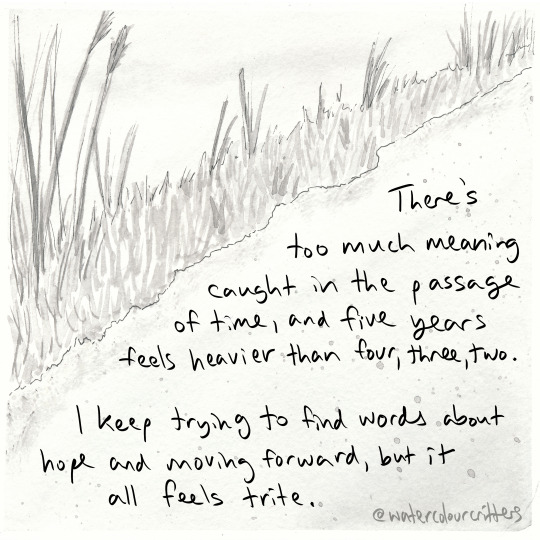 There's
too much meaning
caught in the passage
of time, and five years
feels heavier than four, three, two.
I keep trying to find words about
hope and moving forward, but it
all feels trite.
@watercolourcritters